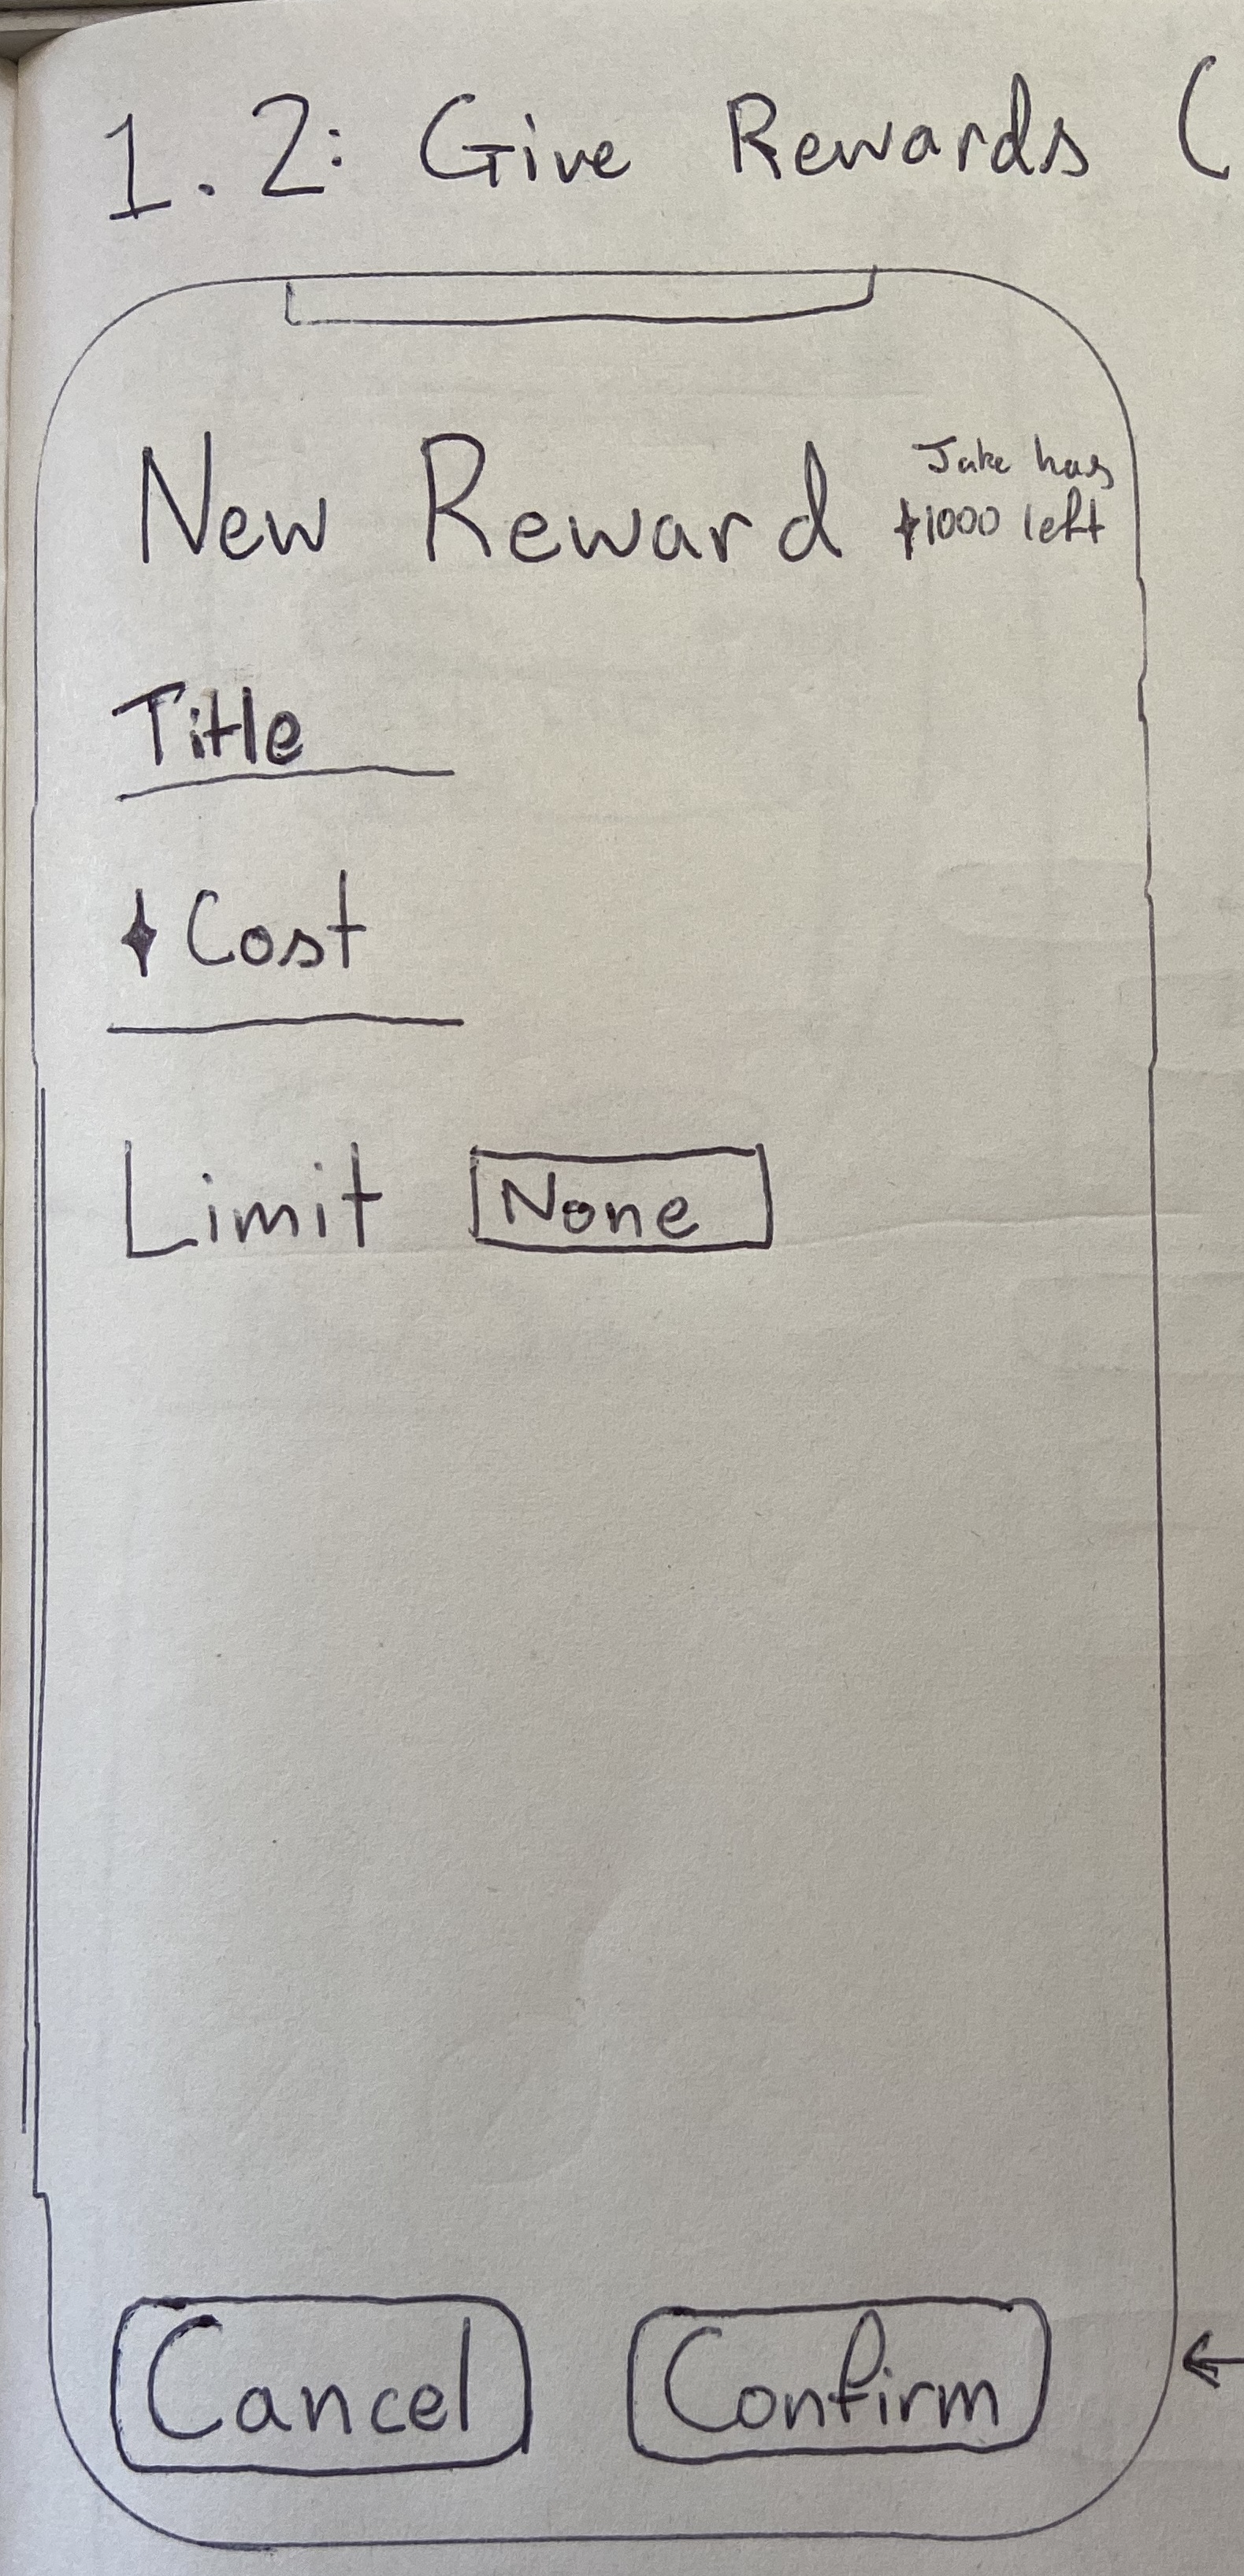 1.2: Give Rewards (
New Reward
Jake has
✦1000 left
Title
✦ Cost
Limit None
Cancel Confirm